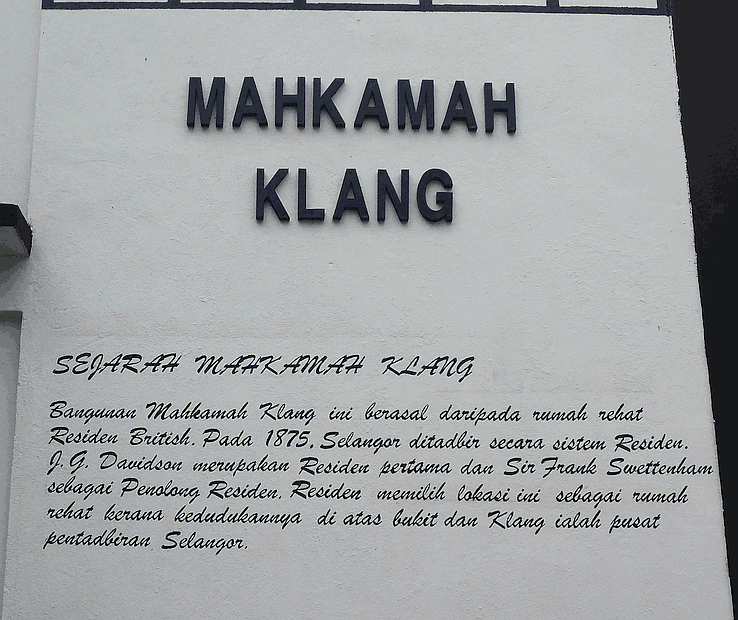 MAHKAMAH
KLANG
SEJARAH MAHKAMAH KLANG
Bangunan Mahkamah Klang ini berasal daripada rumah rehat
Residen British. Pada 1875, Selangor ditadbir secara sistem Residen.
J.G. Davidson merupakan Residen pertama dan Sir Frank Swettenham
sebagai Penolong Residen. Residen memilih lokasi ini sebagai rumah
rehat kerana kedudukannya di atas bukit dan Klang ialah pusat
pentadbiran Selangor.